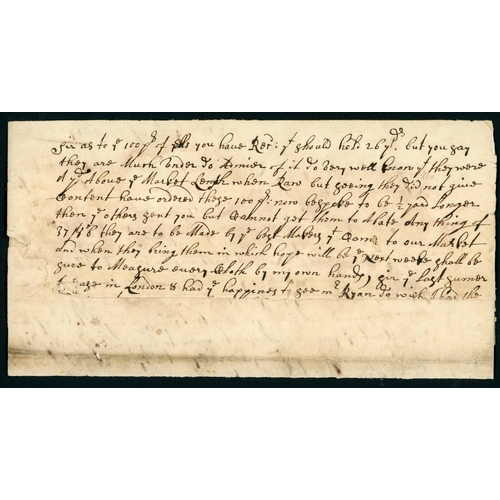 Sir as to ye 100 ps of you have Recd: yt should hold 26 yds. but you say
they are Much under do Admier of it do very well know yt they were
1 yd Above ye Market Length when Raw but seeing they did not give
Content have ordered these 100 ps. now bespoke to be ½ yard Longer
then ye others sent you but Cannot get them to Abate Any thing of
37/6 they are to be Made by ye best Makers yt Come to our Market
and when they bring them in which hope will be ye next weeke shall be
sure to Measure every Cloth by my own hands, Sir ye last sumer
I was in London & had ye happines to see mr Ryan do wish I had the